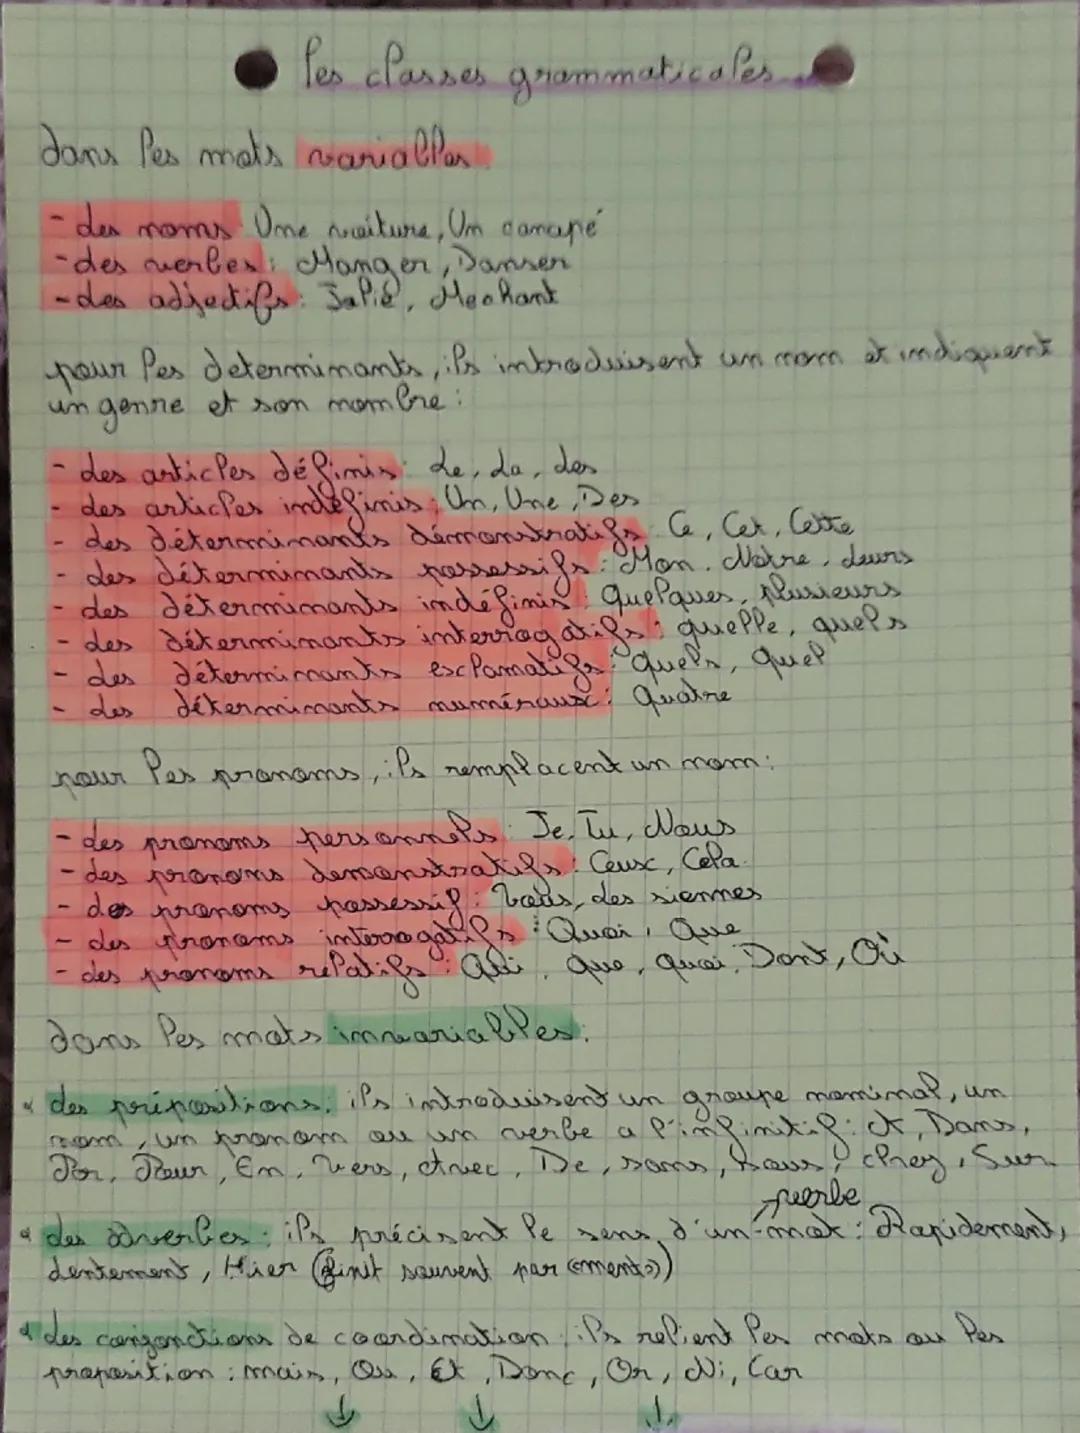 les classes grammaticales
dans les mots variables
- les noms Une voiture, Un canapé
- des verbes : Manger, Danser
- des adjectifs : Jolie, Mechant
pour les determinants, ils introduisent un nom et indiquent
un genre et son nombre :
- des articles définis : Le, La, Les
- des articles indéfinis : Un, Une, Des
- des déterminants démonstratifs : Ce, Cet, Cette
- des déterminants possessifs : Mon, Notre, Leurs
- des déterminants indéfinis : Quelques, plusieurs
- des déterminants interrogatifs : quelle, quels
- des déterminants esclamatifs : Quels, Quel
- des déterminants numéraux : Quatre
pour les pronoms, ils remplacent un nom :
- des pronoms personnels : Je, Tu, Nous
- des pronoms demonstratifs : Ceux, Cela
- des pronoms possessif : les siennes
- des pronoms interrogatifs : Quoi, Que
- des pronoms relatifs : Qui, Que, Quoi, Dont, Où
dans les mots invariables :
des prépositions : ils introduisent un groupe nominal, un
nom, un pronom ou un verbe a l'infinitif : A, Dans,
Par, Pour, En, Vers, Avec, De, sans, sous, chez, Sur
verbe
des adverbes : ils précisent le sens d'un mot : Rapidement,
Lentement, Hier (finit souvent par «ment»)
les conjonctions de coordination : ils relient les mots ou les
proposition : mais, Ou, Et, Donc, Or, Ni, Car